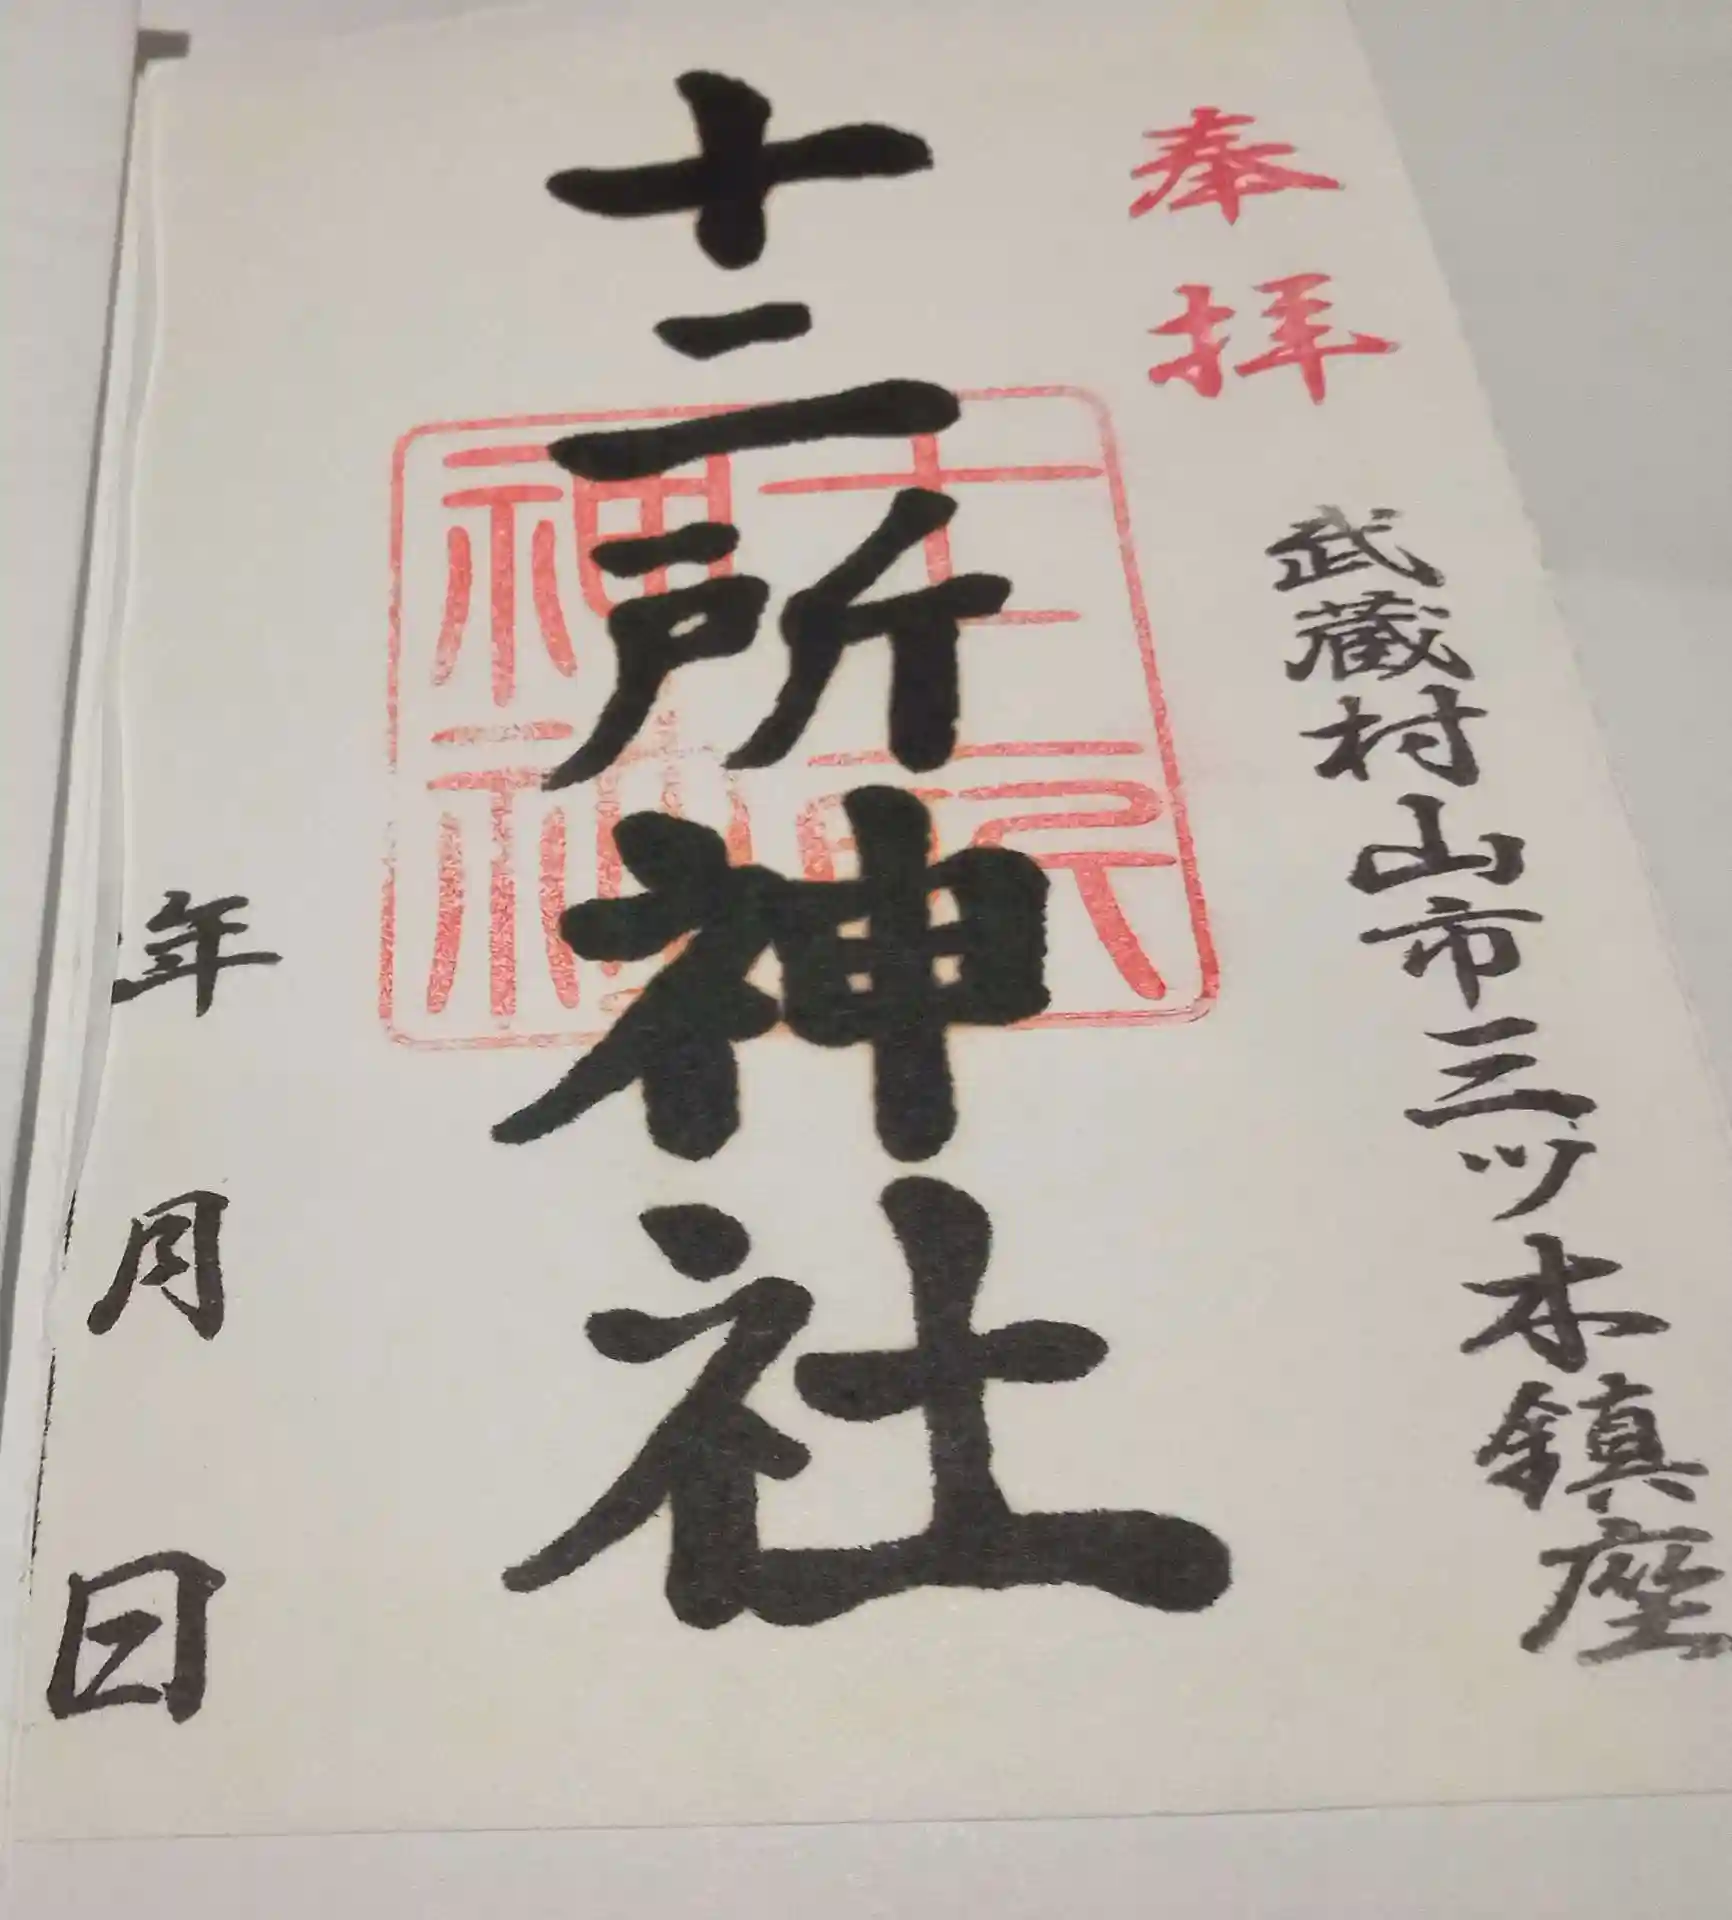 奉拝
武蔵村山市三ツ木鎮座
十二所神社
十二所神社
年月日